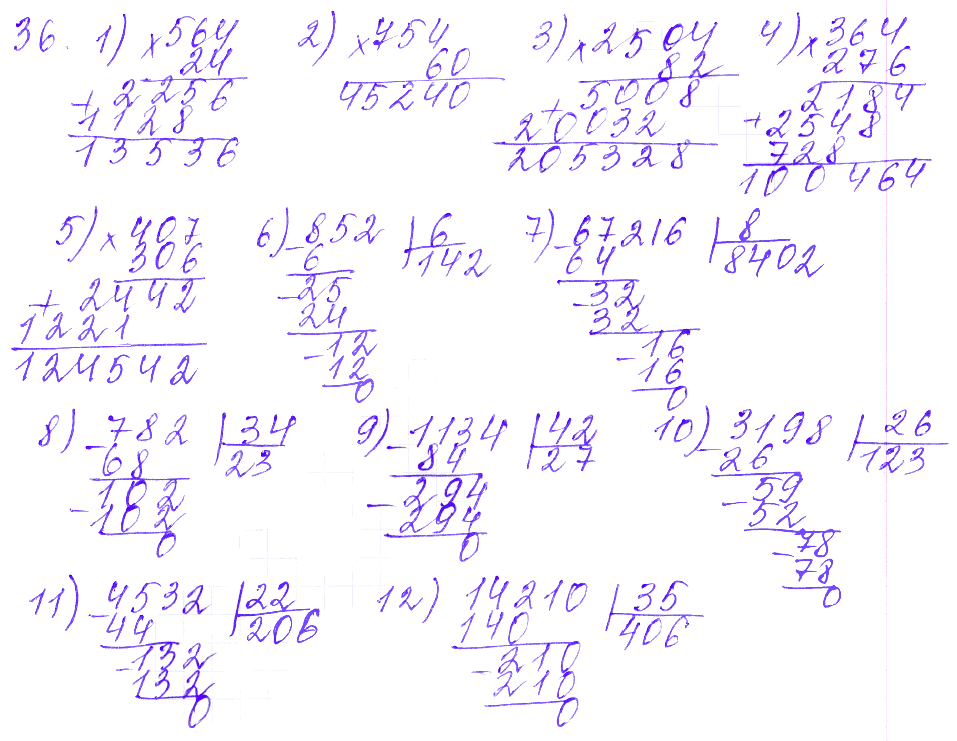 36. 1) ×564 2) ×754 3) ×2504 4) ×364
24 60 82 276
2256 45240 5008 2184
+1128 +20032 +2548
13536 205328 728
100464
5) ×407 6) −852 | 6 7) −67216 | 8
306 6 142 64 8402
+2442 −25 −32
1221 24 32
124542 −12 −16
12 16
0 0
8) −782 | 34 9) −1134 | 42 10) −3198 | 26
68 23 84 27 26 123
−102 −294 −59
102 294 52
0 0 −78
78
0
11) −4532 | 22 12) 14210 | 35
44 206 140 406
−132 −210
132 210
0 0